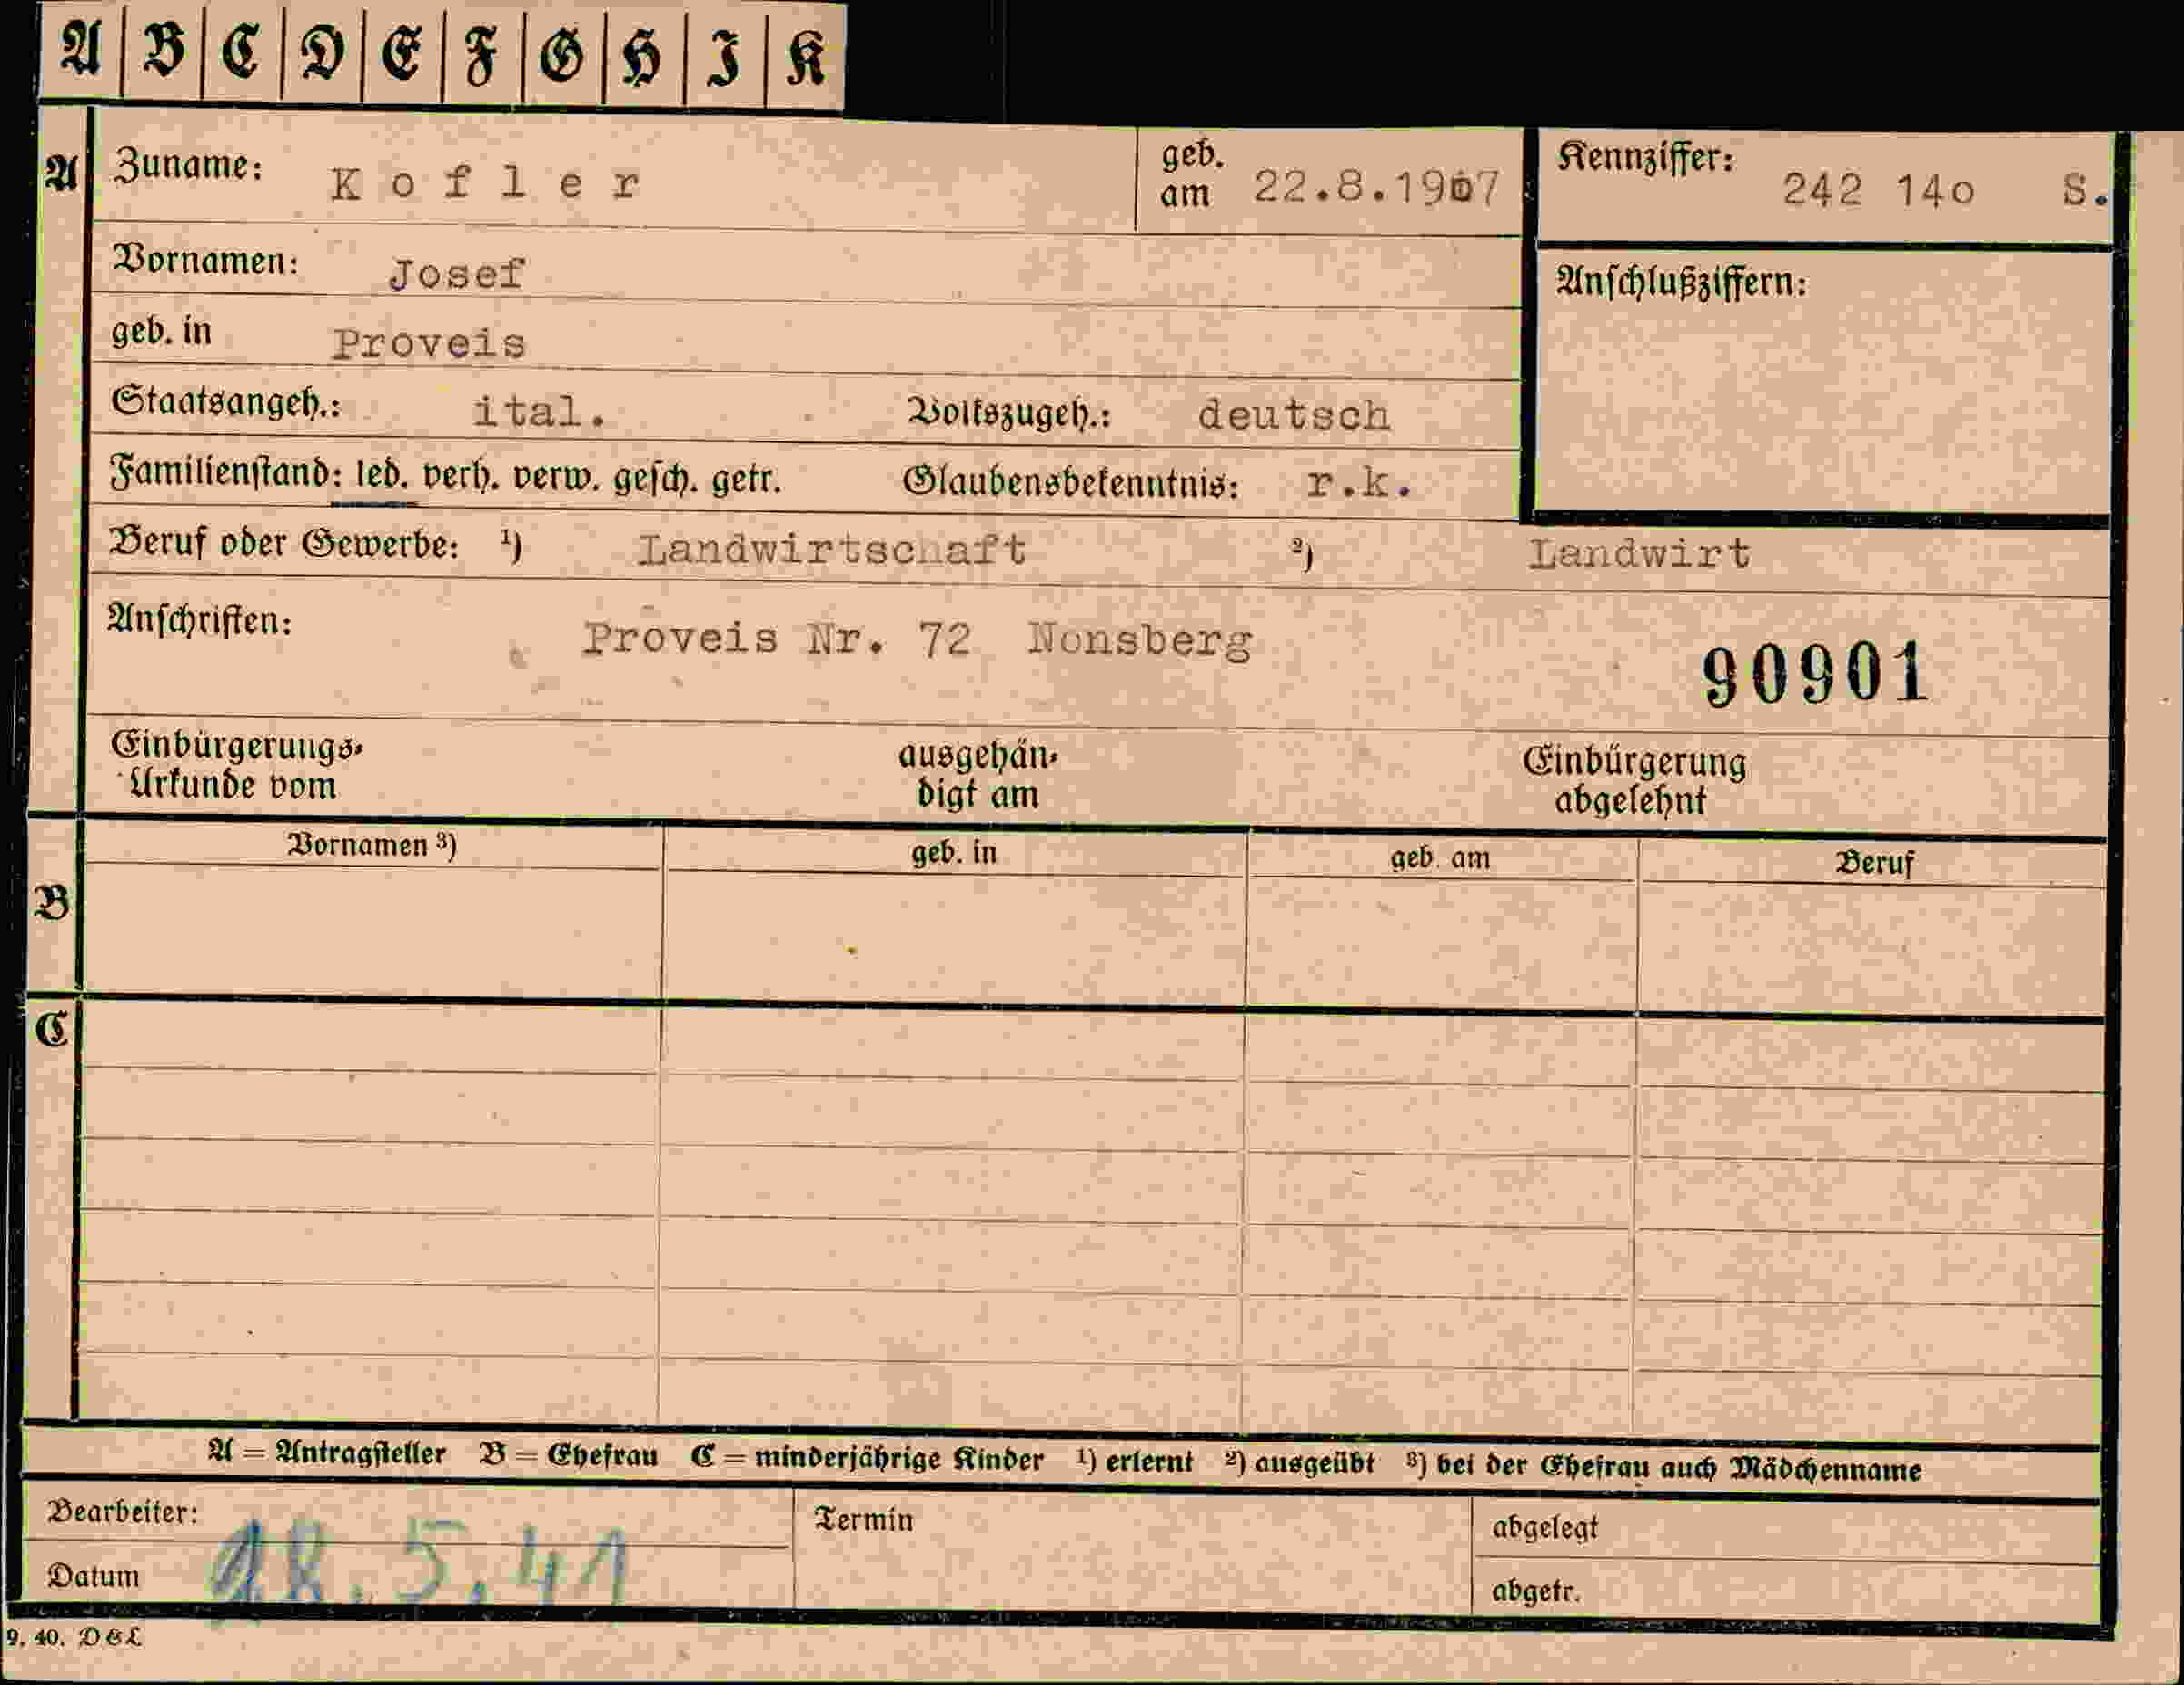 A B C D E F G H I K
A Zuname: Kofler geb. am 22.8.1907 Kennziffer: 242 14o S.
Vornamen: Josef Anschlußziffern:
geb. in Proveis
Staatsangeh.: ital. Volkszugeh.: deutsch
Familienstand: led. verh. verw. gesch. getr. Glaubensbekenntnis: r.k.
Beruf oder Gewerbe: ¹) Landwirtschaft ²) Landwirt
Anschriften: Proveis Nr. 72 Nonsberg
90901
Einbürgerungs- ausgehän- Einbürgerung
Urkunde vom digt am abgelehnt
Vornamen ³) geb. in geb. am Beruf
B
C
A = Antragsteller B = Ehefrau C = minderjährige Kinder ¹) erlernt ²) ausgeübt ³) bei der Ehefrau auch Mädchenname
Bearbeiter: Termin abgelegt
Datum 5.41 abgetr.
9. 40. D&L